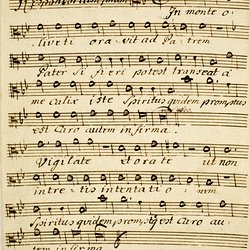 In monte o
liveti ora vit ad Pa trem
Pater Si fi eri potest transeat a
me calix iste Spiritus quidem promptus
est Caro autem infirma
Vigilate et orate ut non
intre tis in tentati o nem
Spiritus quidem promptq est Caro au
tem infirma